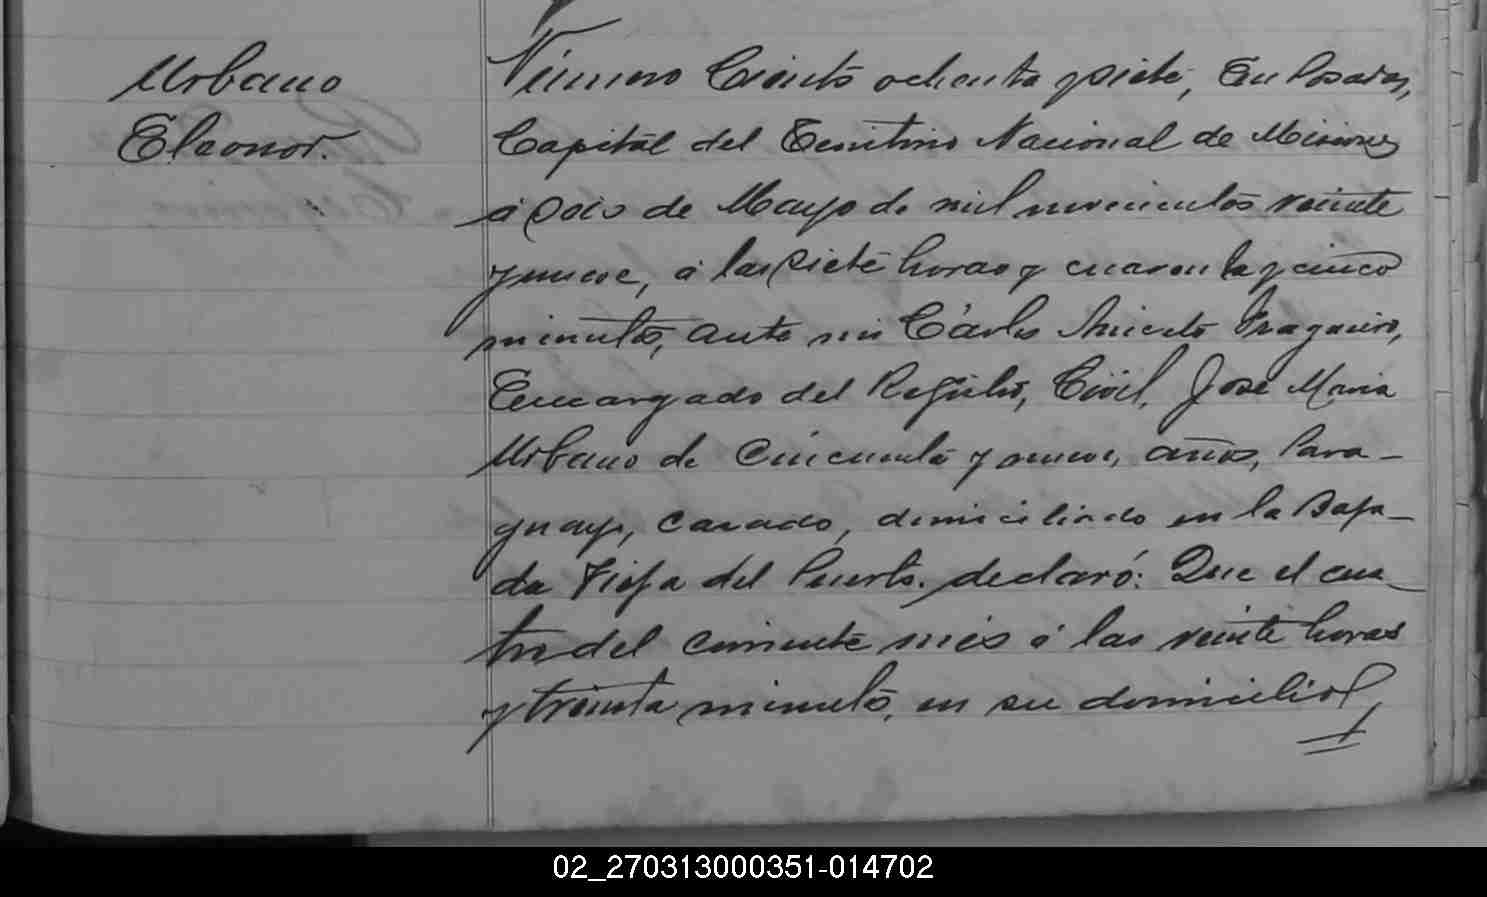 Urbano
Eleonor.
Número Ciento ochenta y siete, En Posadas,
Capital del Territorio Nacional de Misiones
á seis de Mayo de mil novecientos veinte
y nueve, á las siete horas y cuarenta y cinco
minutos, ante mi Cárlos Aniceto Fragueiro,
Encargado del Registro, Civil, José María
Urbano de Cincuenta y nueve, años, Para-
guayo, casado, domiciliado en la Baja-
da Vieja del Puerto. declaró: Que el cua-
tro del corriente mes á las veinte horas
y treinta minutos, en su domicilio
02_270313000351-014702